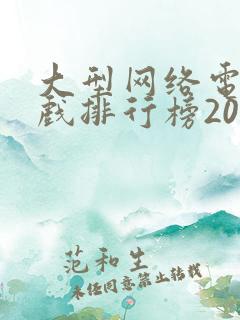 大型网络电
戏排行榜20
范和生
未经同意禁止转载